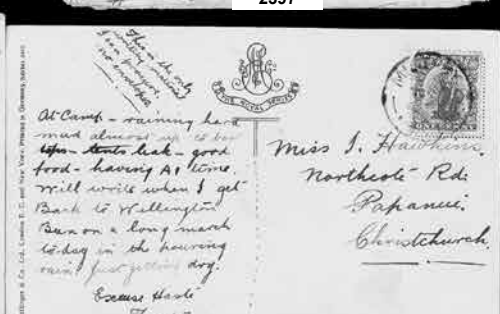 2557
This is the only
writing material
I can procure
no envelopes
THE ROYAL SERIES
At Camp - raining hard
mud almost up to
tops - tents leak - good
food - having A1 time.
Will write when I get
Back to Wellington
Been on a long march
to-day in the pouring
rain just getting dry.
Excuse Haste
Miss I. Hawkins.
Northcote Rd.
Papanui.
Christchurch.